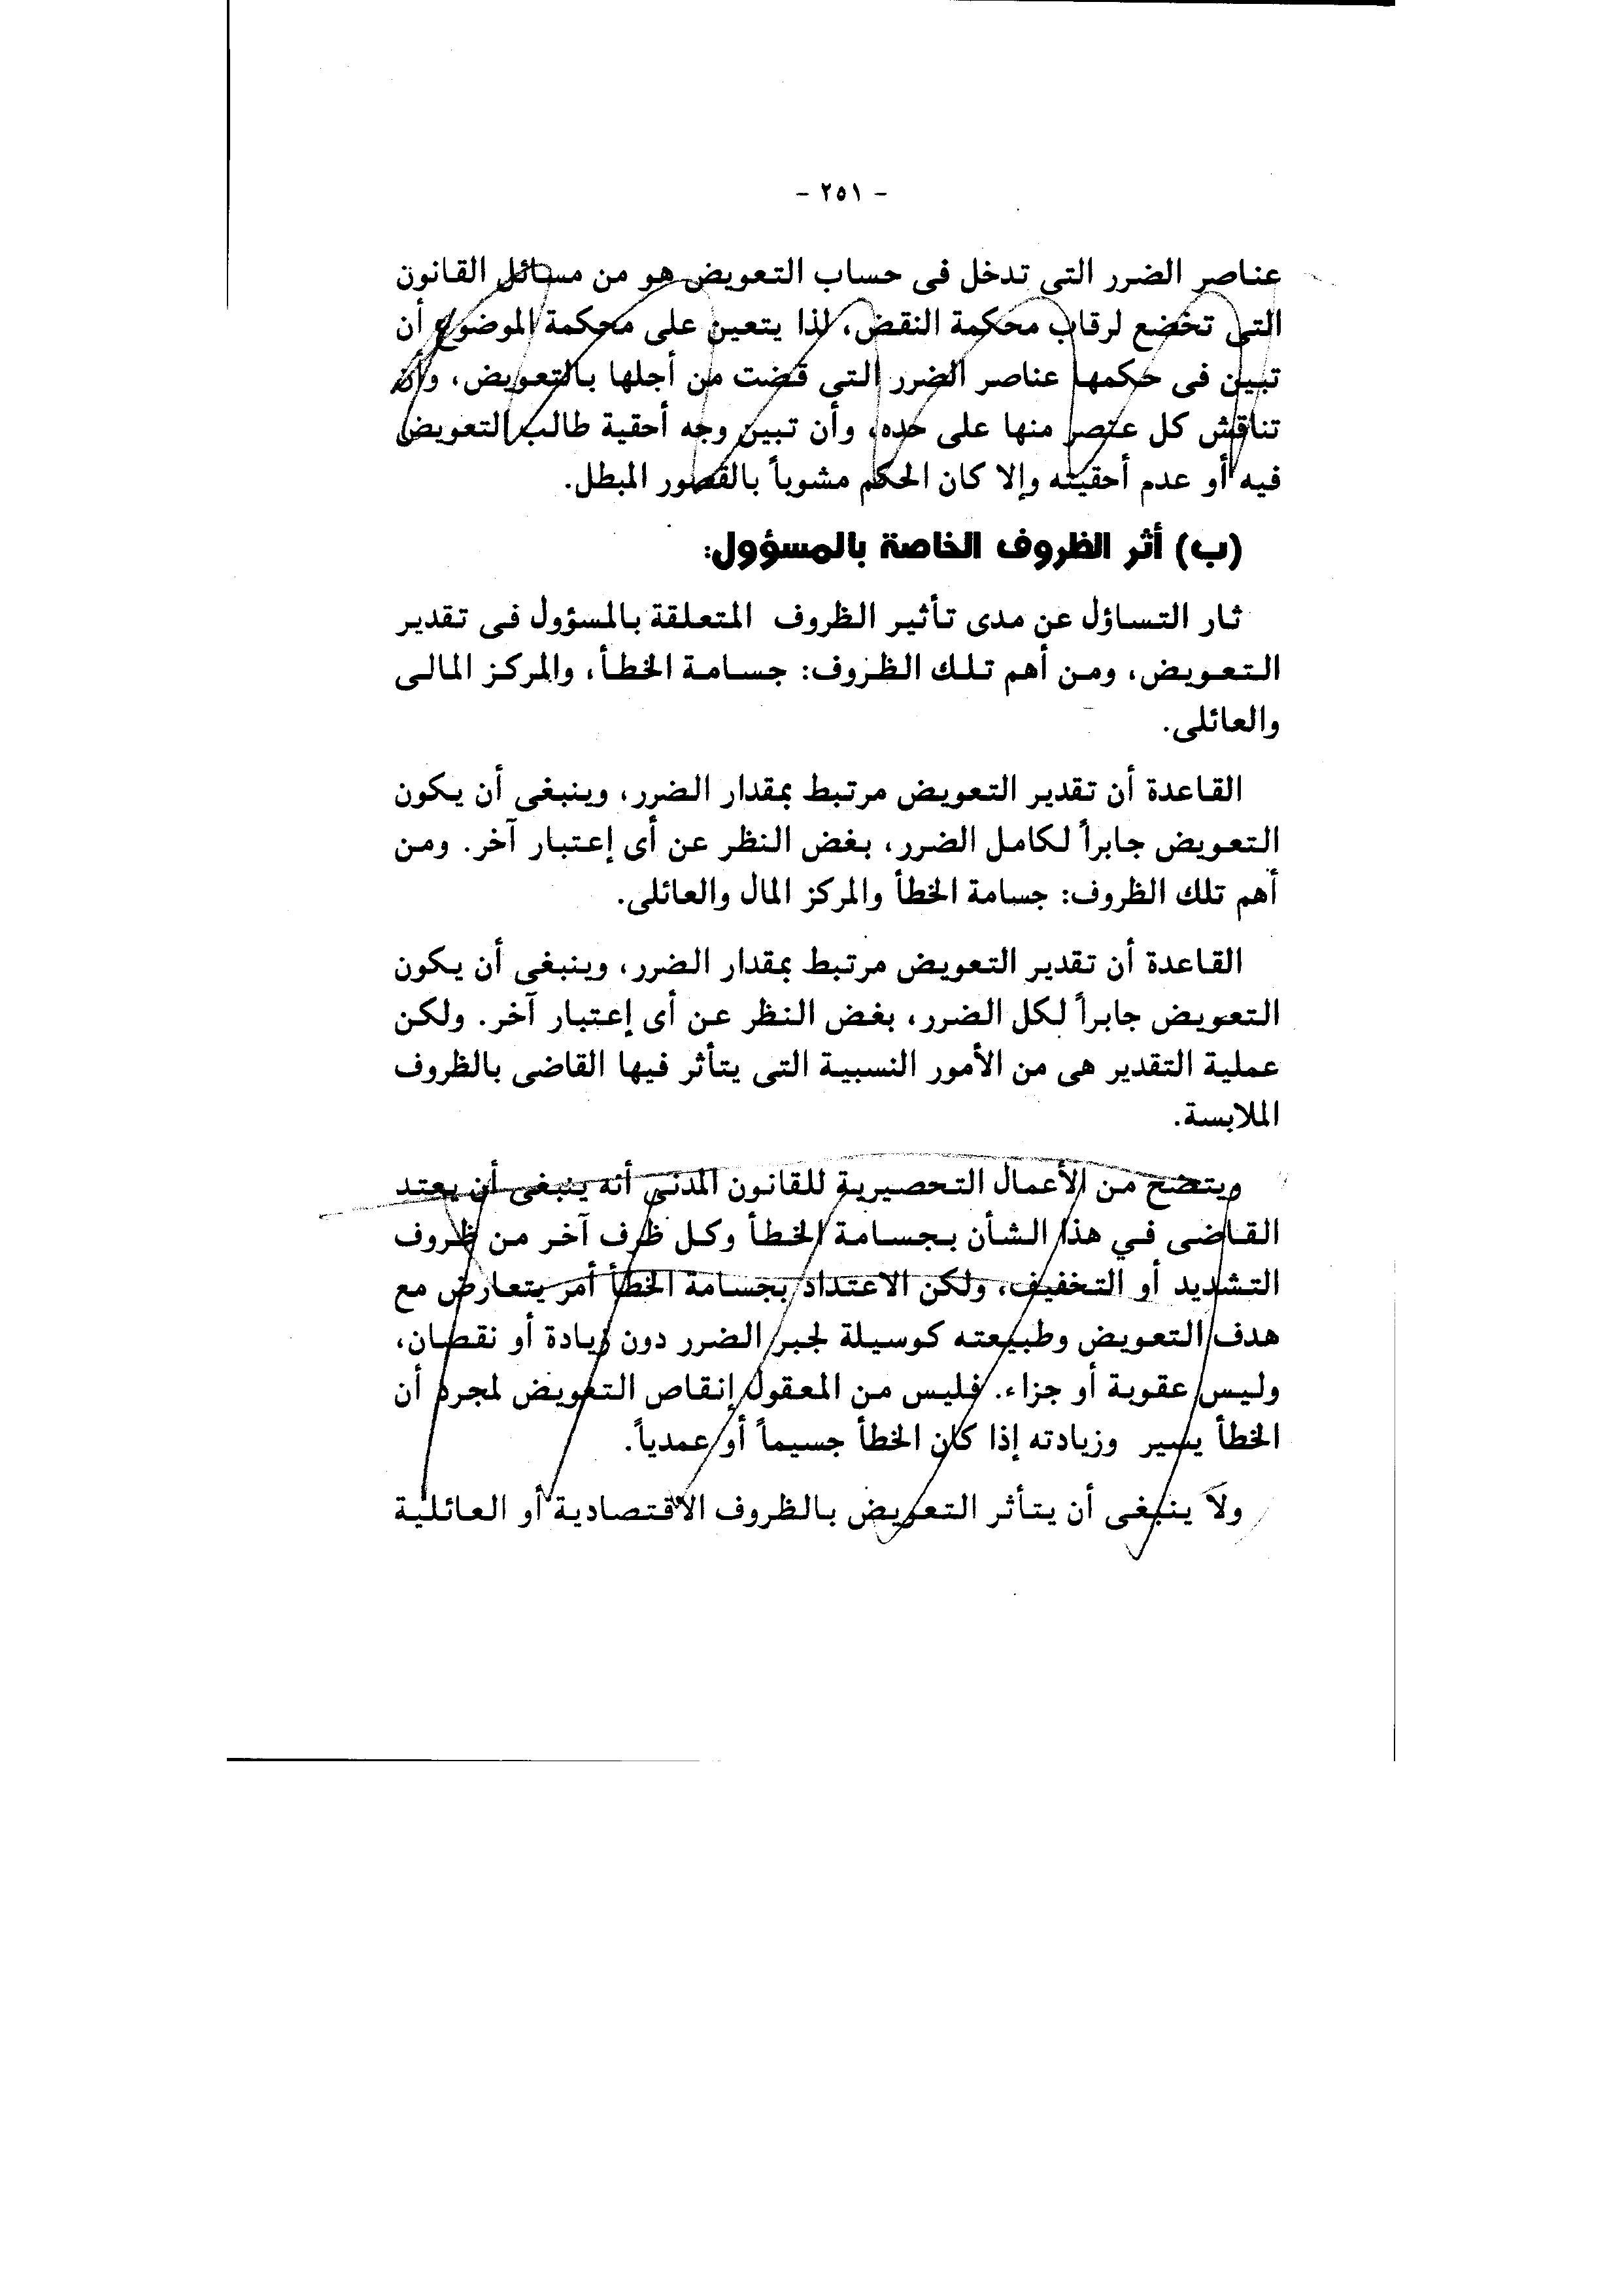 - ٢٥١ -
عناصر الضرر التى تدخل فى حساب التعويض هو من مسائل القانون
التى تخضع لرقاب محكمة النقض، لذا يتعين على محكمة الموضوع أن
تبين فى حكمها عناصر الضرر التى قضت من أجلها بالتعويض، وأن
تناقش كل عنصر منها على حده، وأن تبين وجه أحقية طالب التعويض
فيه أو عدم أحقيته وإلا كان الحكم مشوباً بالقصور المبطل.
(ب) أثر الظروف الخاصة بالمسؤول:
ثار التساؤل عن مدى تأثير الظروف المتعلقة بالمسؤول فى تقدير
التعويض، ومن أهم تلك الظروف: جسامة الخطأ، والمركز المالى
والعائلى.
القاعدة أن تقدير التعويض مرتبط بمقدار الضرر، وينبغى أن يكون
التعويض جابراً لكامل الضرر، بغض النظر عن أى إعتبار آخر. ومن
أهم تلك الظروف: جسامة الخطأ والمركز المال والعائلى.
القاعدة أن تقدير التعويض مرتبط بمقدار الضرر، وينبغى أن يكون
التعويض جابراً لكل الضرر، بغض النظر عن أى إعتبار آخر. ولكن
عملية التقدير هى من الأمور النسبية التى يتأثر فيها القاضى بالظروف
الملابسة.
ويتضح من الأعمال التحصيرية للقانون المدنى أنه ينبغى أن يعتد
القاضى في هذا الشأن بجسامة الخطأ وكل ظرف آخر من ظروف
التشديد أو التخفيف، ولكن الاعتداد بجسامة الخطأ أمر يتعارض مع
هدف التعويض وطبيعته كوسيلة لجبر الضرر دون زيادة أو نقصان،
وليس عقوبة أو جزاء. فليس من المعقول إنقاص التعويض لمجرد أن
الخطأ يسير وزيادته إذا كان الخطأ جسيماً أو عمدياً.
ولا ينبغى أن يتأثر التعويض بالظروف الاقتصادية أو العائلية